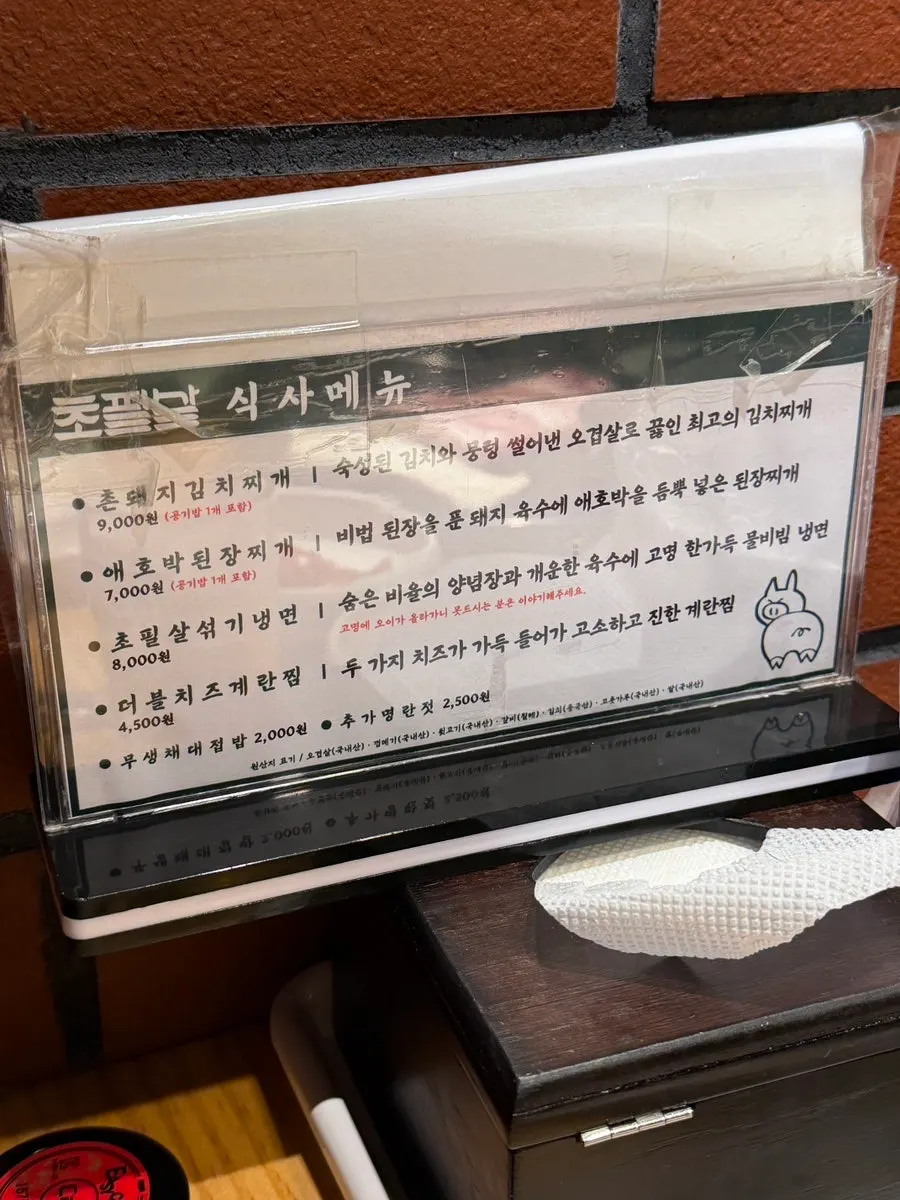 초필살 식사메뉴
● 촌돼지김치찌개 | 숙성된 김치와 뭉텅 썰어낸 오겹살로 끓인 최고의 김치찌개
9,000원 (공기밥 1개 포함)
● 애호박된장찌개 | 비법 된장을 푼 돼지 육수에 애호박을 듬뿍 넣은 된장찌개
7,000원 (공기밥 1개 포함)
● 초필살섞기냉면 | 숨은 비율의 양념장과 개운한 육수에 고명 한가득 물비빔 냉면
8,000원 고명에 오이가 올라가니 못드시는 분은 이야기해주세요.
● 더블치즈계란찜 | 두 가지 치즈가 가득 들어가 고소하고 진한 계란찜
4,500원
● 무생채대접밥 2,000원 ● 추가명란젓 2,500원
원산지 표기 / 오겹살(국내산) · 껍데기(국내산) · 뒷고기(국내산) · 갈비(칠레) · 김치(중국산) · 고춧가루(국내산) · 쌀(국내산)